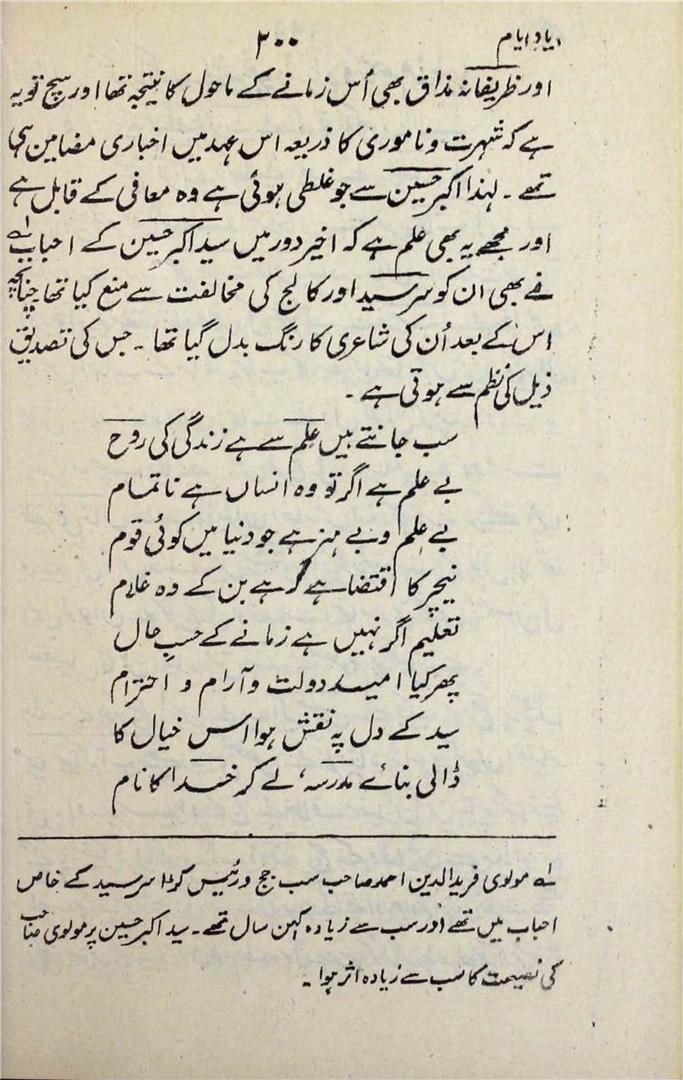 یاد ایام
۲۰۰
اور ظریفانہ مذاق بھی اُس زمانے کے ماحول کا نتیجہ تھا اور سچ تو یہ
ہے کہ شہرت و ناموری کا ذریعہ اس عہد میں اخباری مضامین ہی
تھے ۔ لہٰذا اکبر حسین سے جو غلطی ہوئی ہے وہ معافی کے قابل ہے
اور مجھے یہ بھی علم ہے کہ اخیر دور میں سید اکبر حسین کے احباب لہ
نے بھی ان کو سرسید اور کالج کی مخالفت سے منع کیا تھا چنانچہ
اس کے بعد اُن کی شاعری کا رنگ بدل گیا تھا ۔ جس کی تصدیق
ذیل کی نظم سے ہوتی ہے ۔
سب جانتے ہیں علم سے ہے زندگی کی روح
بے علم ہے اگر تو وہ انساں ہے ناتمام
بے علم و بے ہنر ہے جو دنیا میں کوئی قوم
نیچر کا اقتضا ہے کہ رہے بن کے وہ غلام
تعلیم اگر نہیں ہے زمانے کے حسبِ حال
پھر کیا امید دولت و آرام و احترام
سید کے دل پہ نقش ہوا اس خیال کا
ڈالی بنائے مدرسہ، لے کر خدا کا نام
لہ مولوی فرید الدین احمد صاحب سب جج و رئیس کڑا سرسید کے خاص
احباب میں تھے اور سب سے زیادہ کہن سال تھے ۔ سید اکبر حسین پر مولوی صاحب
کی نصیحت کا سب سے زیادہ اثر ہوا ۔